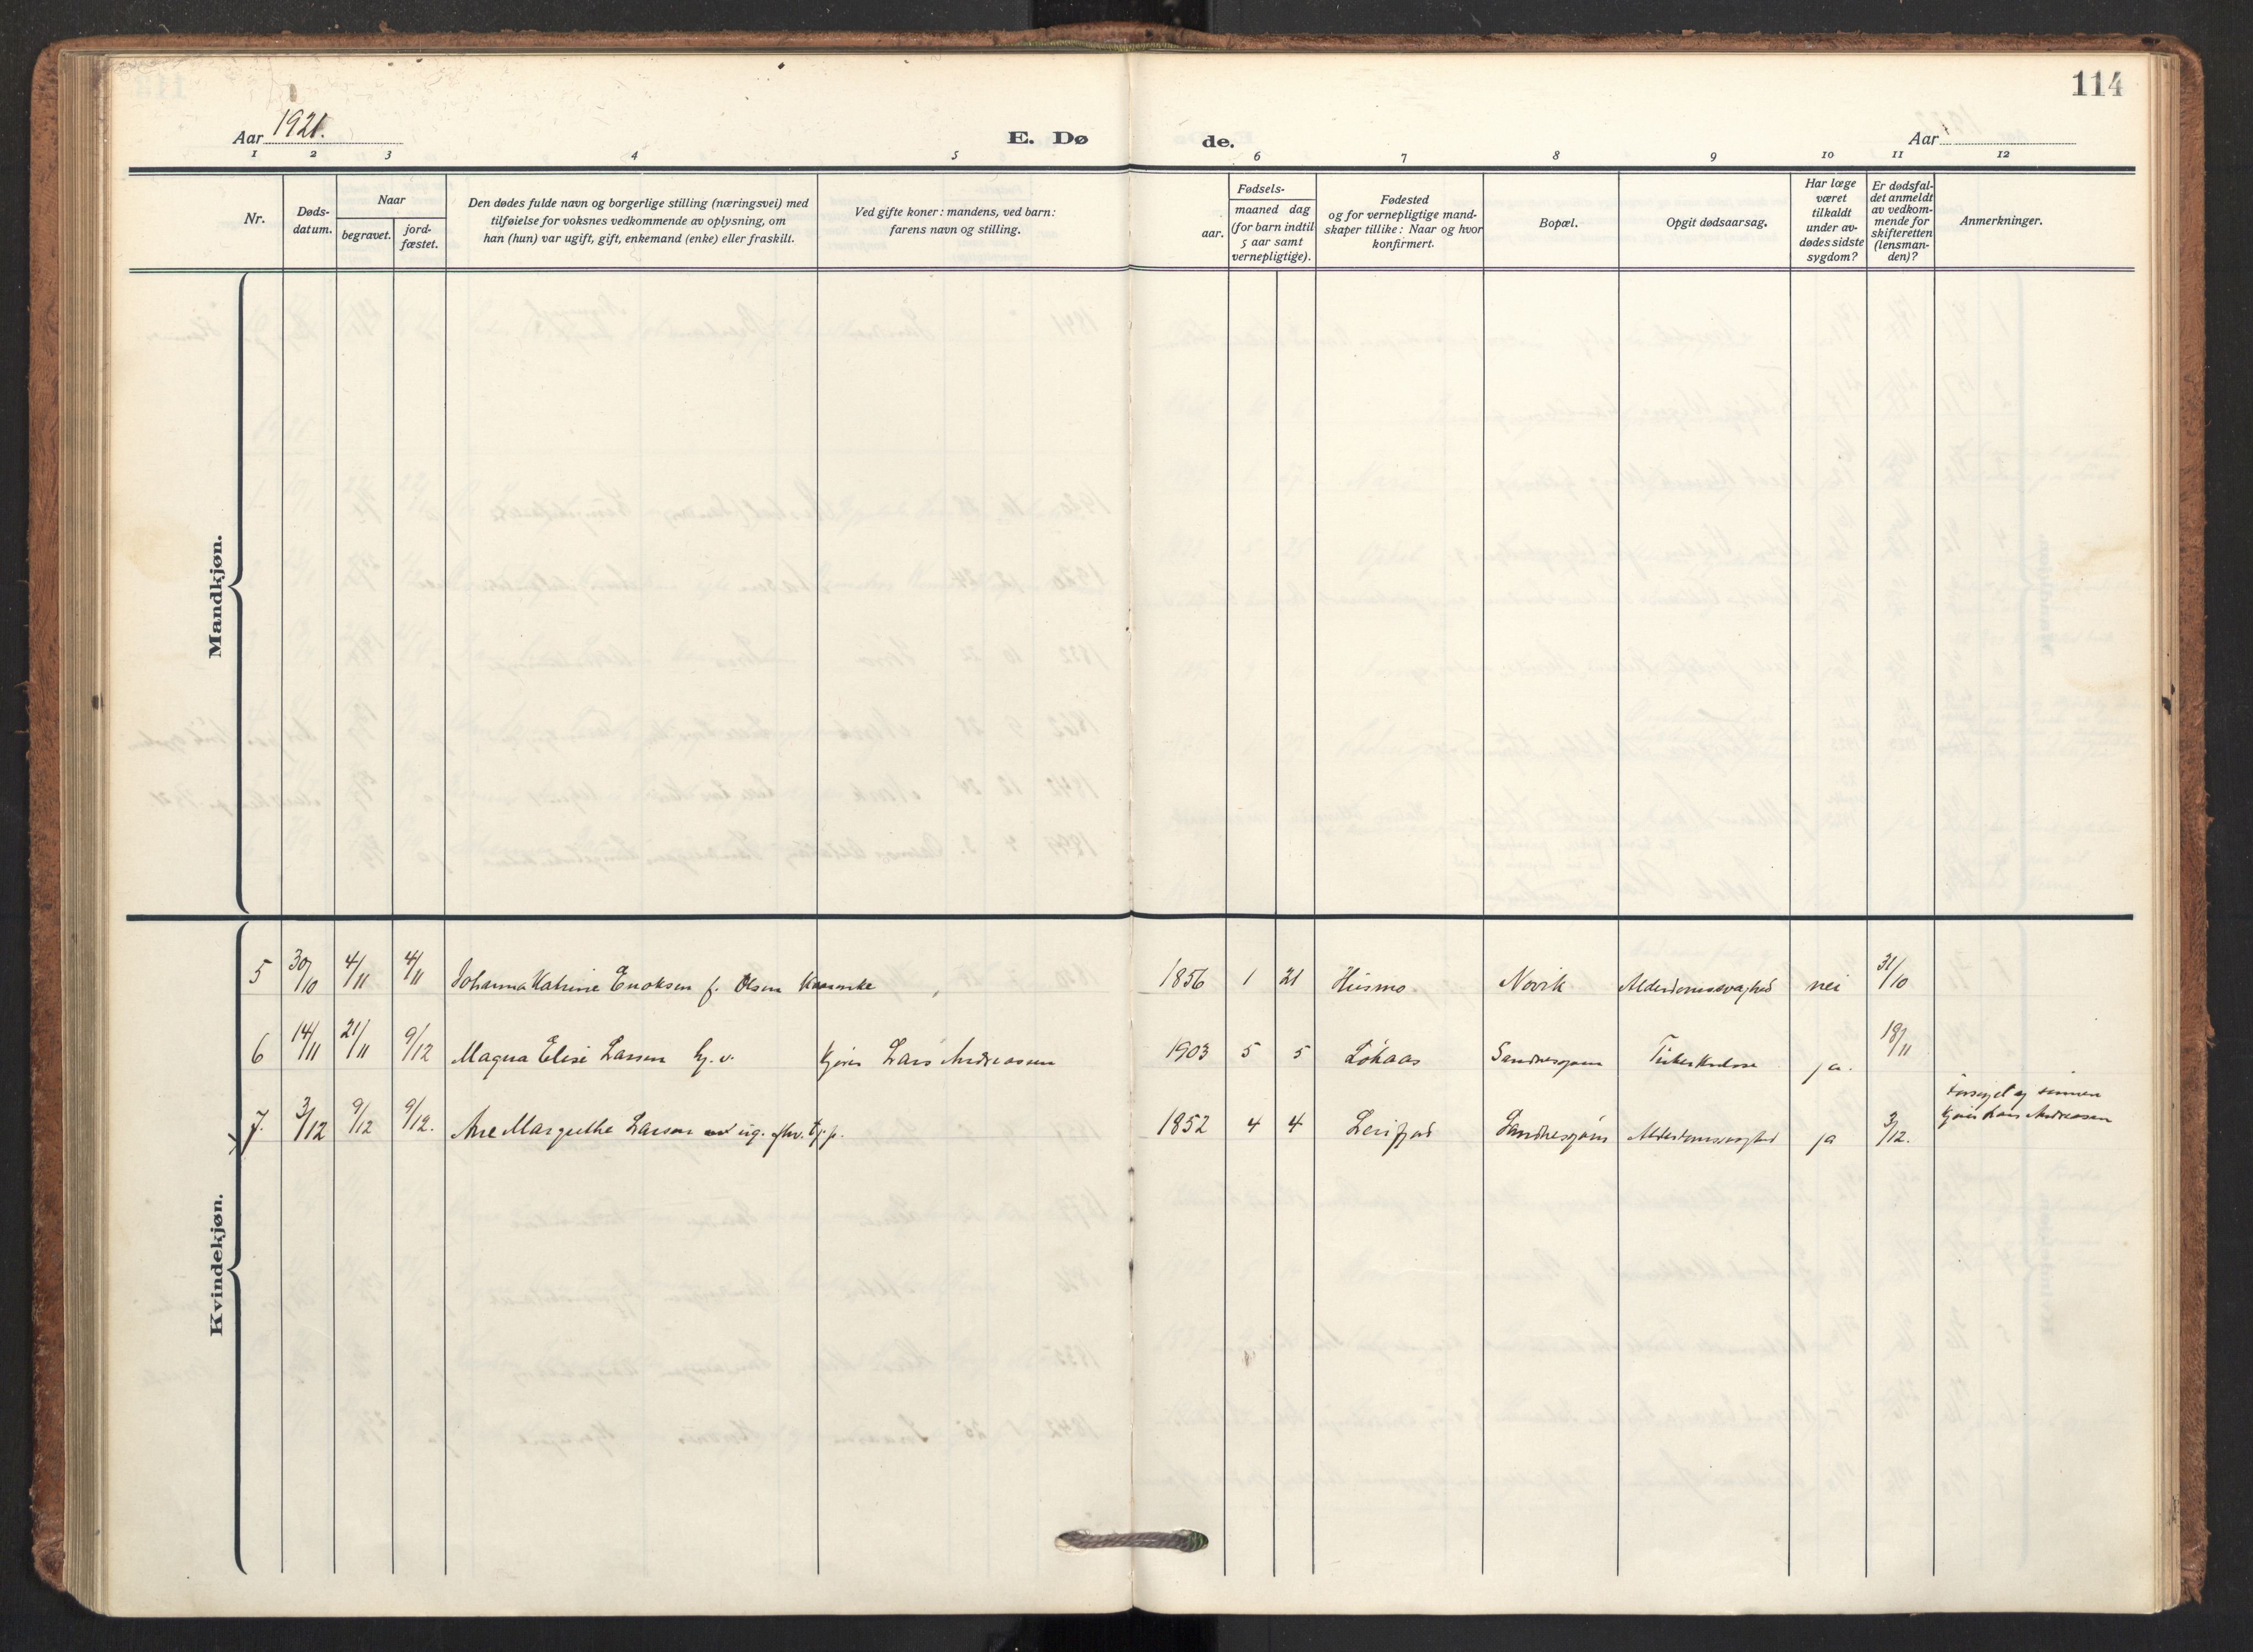 114
Aar 1921.
E. Dø
de.
Aar
1 2 3 4 5 6 7 8 9 10 11 12
Nr.
Døds-
datum.
Naar
begravet.
jord-
fæstet.
Den dødes fulde navn og borgerlige stilling (næringsvei) med
tilføielse for voksnes vedkommende av oplysning, om
han (hun) var ugift, gift, enkemand (enke) eller fraskilt.
Ved gifte koner: mandens, ved barn:
farens navn og stilling.
Fødsels-
aar.
maaned dag
(for barn indtil
5 aar samt
vernepligtige).
Fødested
og for vernepligtige mand-
skaper tillike: Naar og hvor
konfirmert.
Bopæl.
Opgit dødsaarsag.
Har læge
været
tilkaldt
under av-
dødes sidste
sygdom?
Er dødsfal-
det anmeldt
av vedkom-
mende for
skifteretten
(lensman-
den)?
Anmerkninger.
Mandkjøn.
Kvindekjøn.
5 30/10 4/11 4/11 Johanna Katrine Enoksen f. Olsen 1856 1 21 Husmo Novik Alderdomssvaghed nei 31/10
6 14/11 21/11 9/12 Magna Elise Larsen Lars Andreassen 1903 5 5 Løkaas Sandnessjøen Tuberkulose ja. 18/11
7. 3/12 9/12 9/12. Ane Margrethe Larsen 1852 4 4 Leirfjord Sandnessjøen Alderdomssvaghed ja 3/12.
Forsørget av sønnen
Lars Andreassen